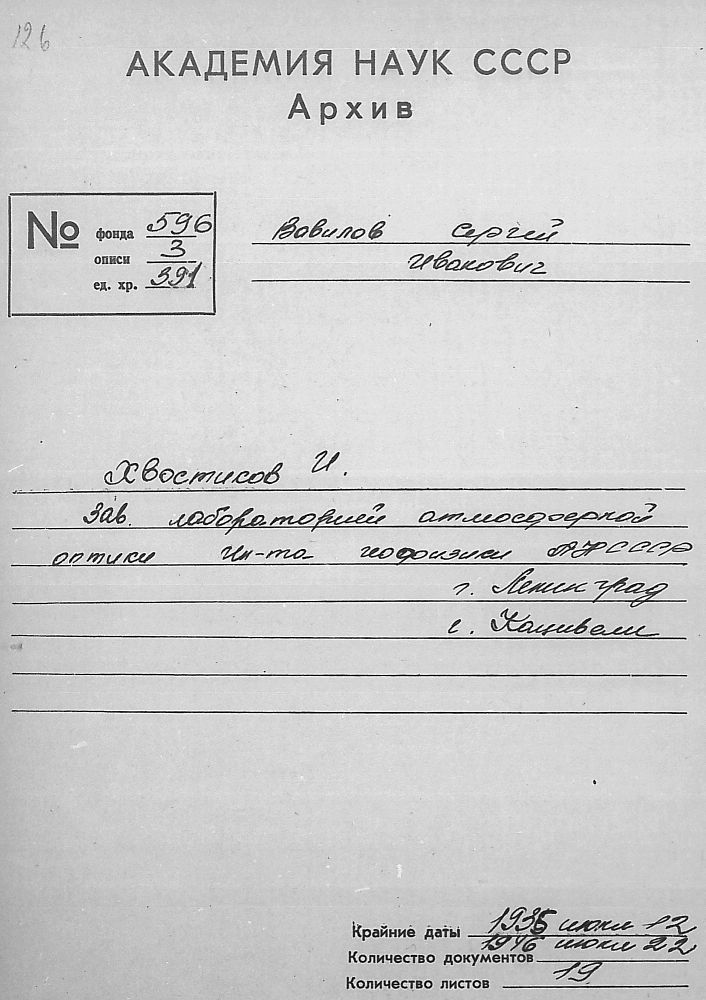 126
АКАДЕМИЯ НАУК СССР
Архив
№ фонда 596
описи 3
ед. хр. 391
Вавилов Сергей
Иванович
Хвостиков И.
Зав. лабораторией атмосферной
оптики Ин-та геофизики АН СССР
г. Ленинград
с. Кацивели
Крайние даты 1935 июня 12
1946 июня 22
Количество документов
Количество листов 19